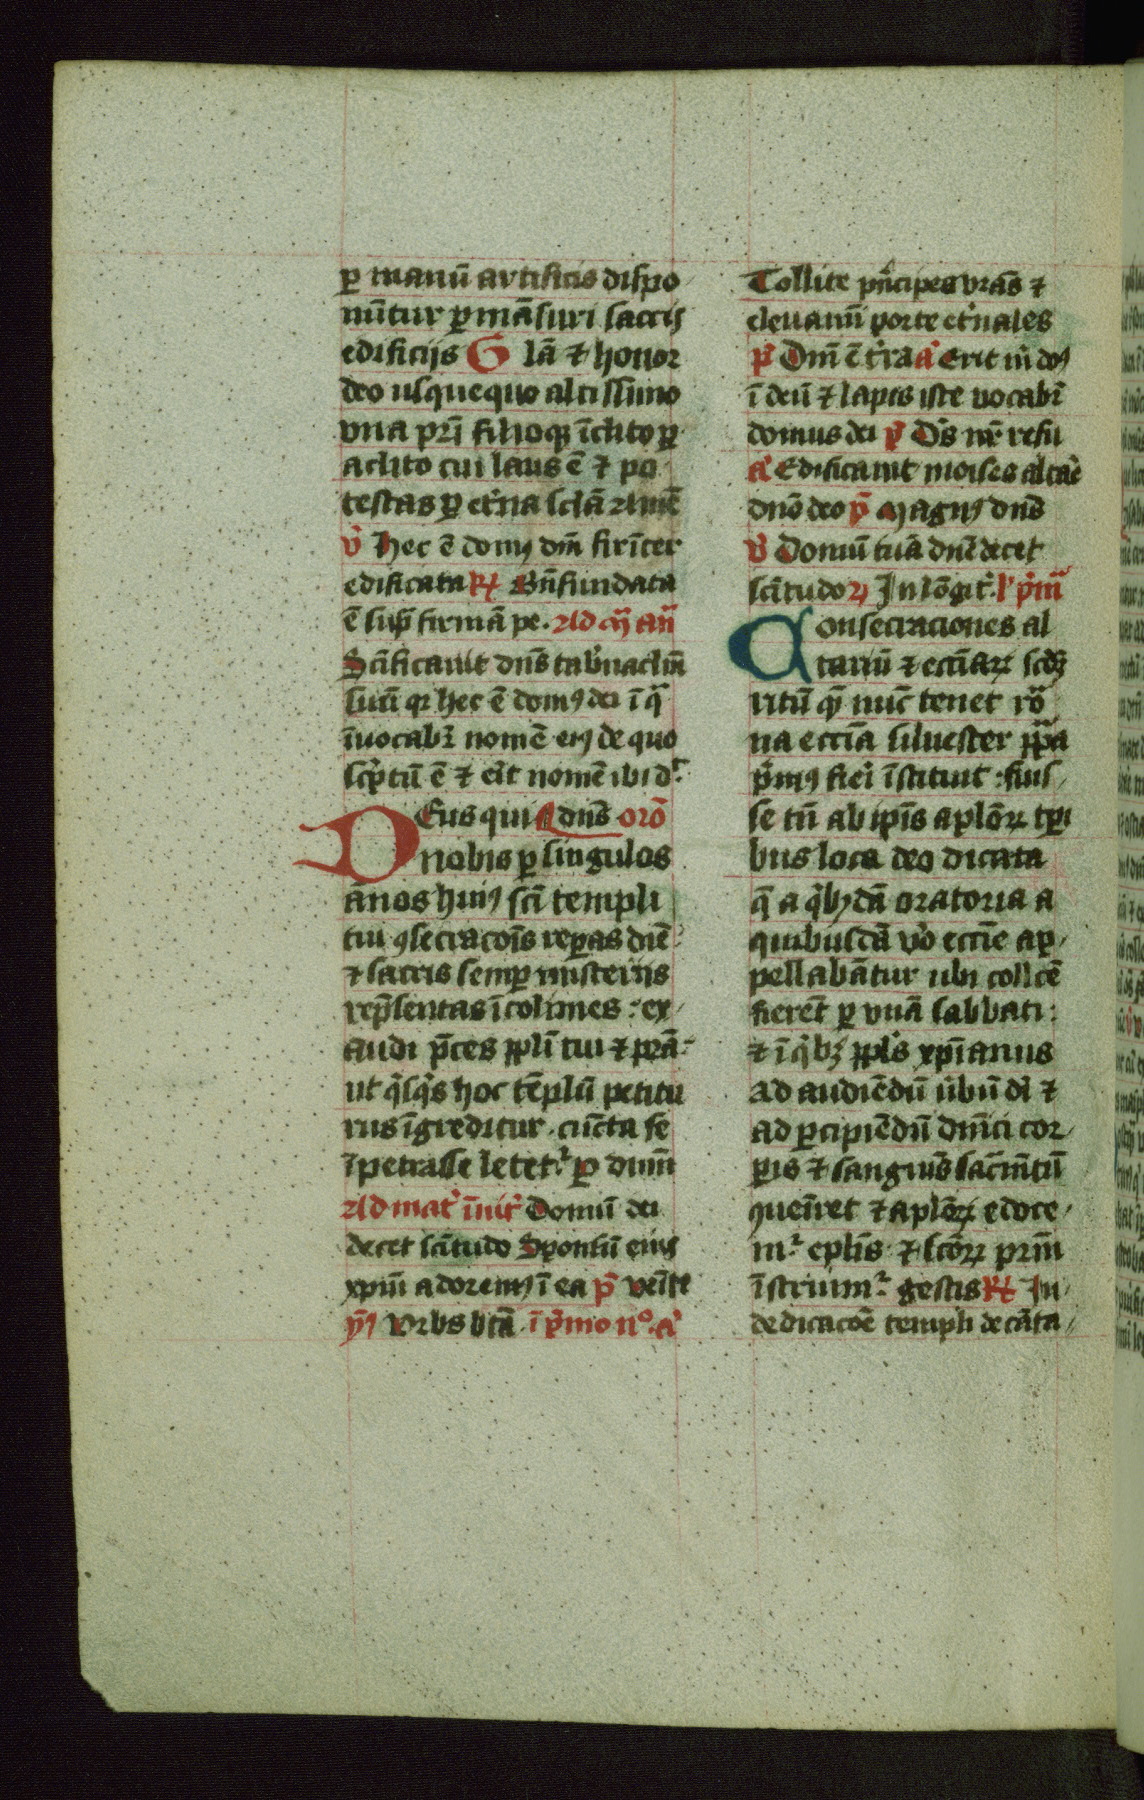 ꝑ manū artificis dispo
nūtur ꝑmāsuri sacris
edificijs Glā ⁊ honor
deo usquequo altissimo
vna prī filioqꝫ īclito ꝑ
aclito cui laus ē ⁊ po
testas ꝑ et̾na sclā amē
v̾ Hec ē domꝯ dn̄i firīter
edificata ꝶ Bn̄ fundata
ē sup̄ firmā pe. Ad mͣ an̄
Sc̄ificauit dn̄s tab̾naclm̄
suū qꝛ hec ē domꝯ dei ī qͣ
īuocabr̄ nomē eiꝯ de quo
sc̾ptū ē ⁊ eīt nomē ibi dᵗ
DEus qui dn̄s orō
nobis ꝑ singulos
ānos huiꝯ sc̄i templi
tui ꝯsecracōīs reꝑas diē
⁊ sacris semꝑ misterijs
rep̄sentas īcolimes : ex
audi p̄ces ppl̄i tui ⁊ pr̄a
ut qͥsqͥs hoc tēplū petitu
rus īgreditur . cūcta se
īpetrasse letetᵗ ꝑ dnm̄
Ad mat̾ īuit̾ Domū dei
decet sc̄itudo Sponsū eius
xpm̄ adoremꝯ ī ea p̄ veīte
ym̄ Vrbs btā ī pͥmo n° a̾
Tollite pn̄cipes vrās ⁊
eleuamī porte et̾nales
p̄ Dnī ē t̾ra a̾ Erit m̄ dn̄s
ī deū ⁊ lapis iste vocabr̄
domus dei p̄ Dˢ nr̄ refu
a̾ Edificauit moises altar̄e
dnō deo p̄ Magnꝯ dn̄s
v̾ Domū tuā dnē decet
sc̄itudo ꝶ In lōgit̾. lͦ pͥmͣ
Consecraciones al
tariū ⁊ eccīaꝝ scdꝫ
ritū qͣ nūc tenet rōͣ
na ecctīa siluester ppͣa
pͥmꝯ fieri īstituit : fuis
se tn̄ ab ipīs aplōꝝ tꝑi
bus loca deo dicata
q̄ a qͥbꝯdā oratoria a
quibusdā vo̾ eccīe ap
pellabātur ubi collcē
fierēt ꝑ vnā sabbati :
⁊ ī qͥbꝫ ppl̄s xpīanus
ad audiēdū ūbū dī ⁊
ad ꝑcipiēdū dnīci cor
ꝑis ⁊ sanguīs sac̄mtū
ꝯueīret ⁊ aplōꝝ edoce
mᵗ epl̄is ⁊ sc̄ōꝝ prm̄
īstruimᵗ gestis ꝶ In
dedicacōē templi decāta